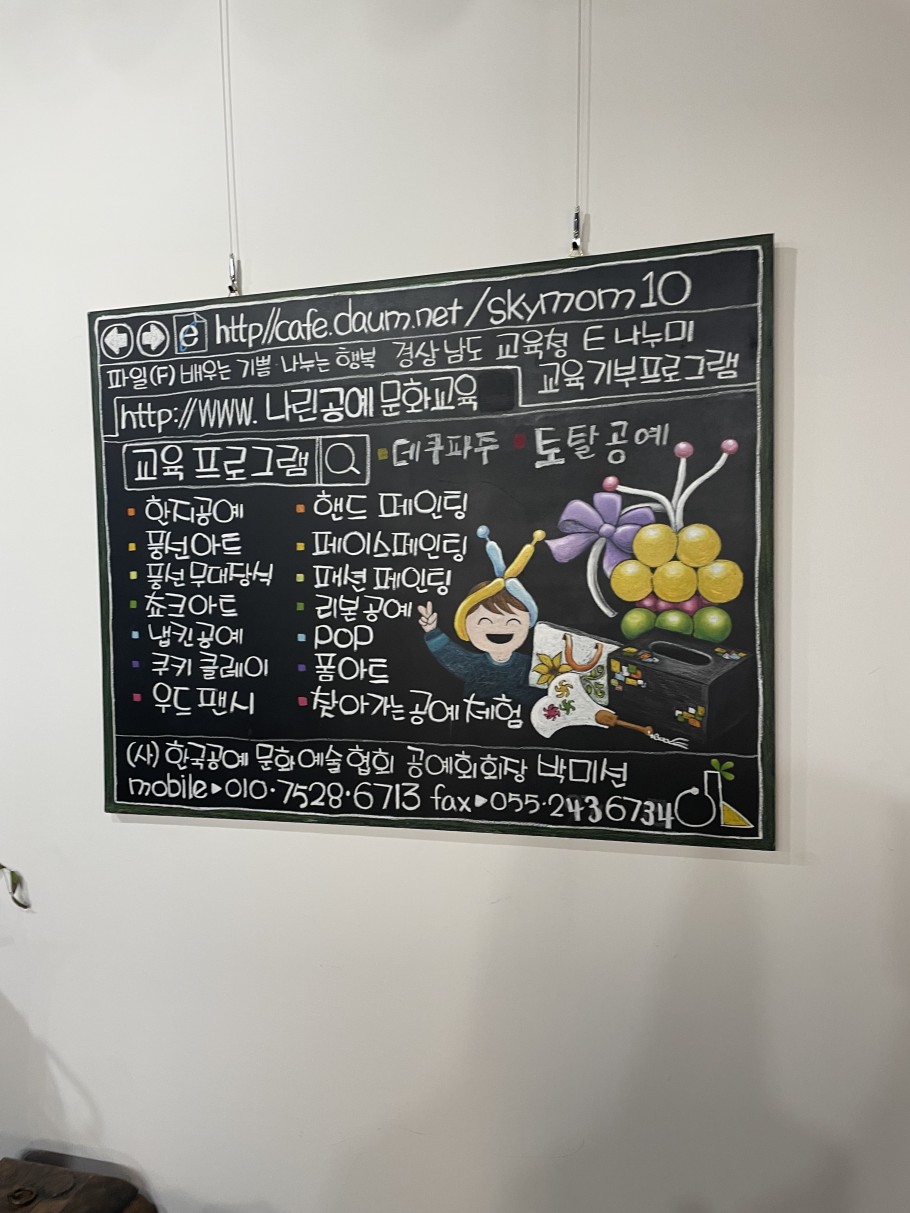 e http//cafe.daum.net/skymom10
파일(F) 배우는 기쁨·나누는 행복 경상남도 교육청 E 나누미
교육기부프로그램
http://www. 나린공예문화교육
교육 프로그램
데쿠파주 토탈공예
한지공예 핸드 페인팅
풍선아트 페이스페인팅
풍선무대장식 패션 페인팅
쵸크아트 리본공예
냅킨공예 POP
쿠키 클레이 폼아트
우드 팬시 찾아가는 공예체험
(사) 한국공예 문화예술협회 공예회회장 박미선
mobile▶010·7528·6713 fax▶055·2436734